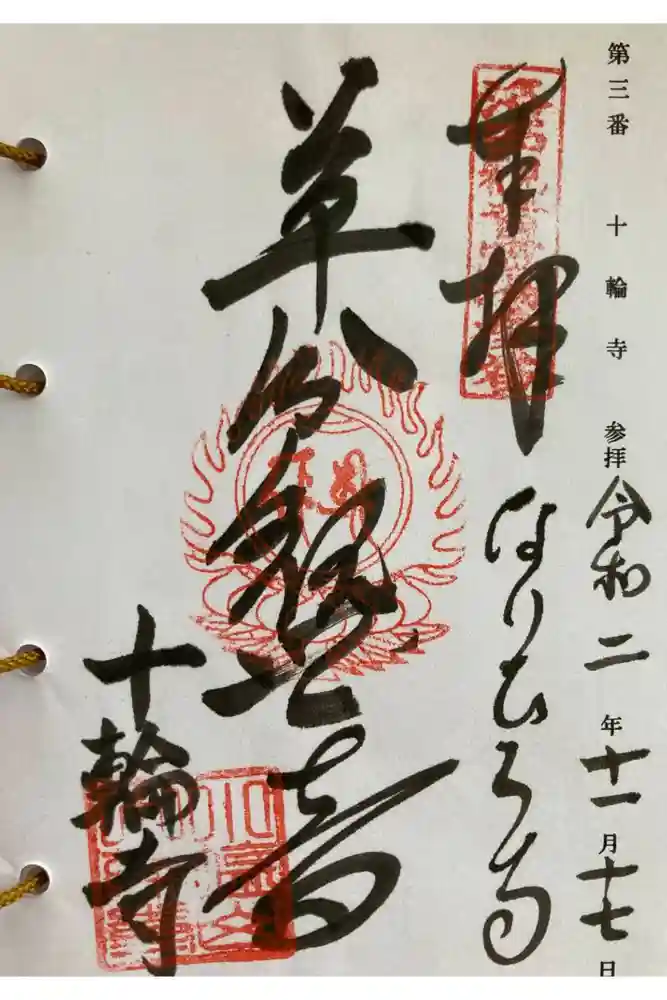 第三番 十輪寺 参拝 令和二年十一月十七日
奉拝
なりひら寺
草分観世音
十輪寺